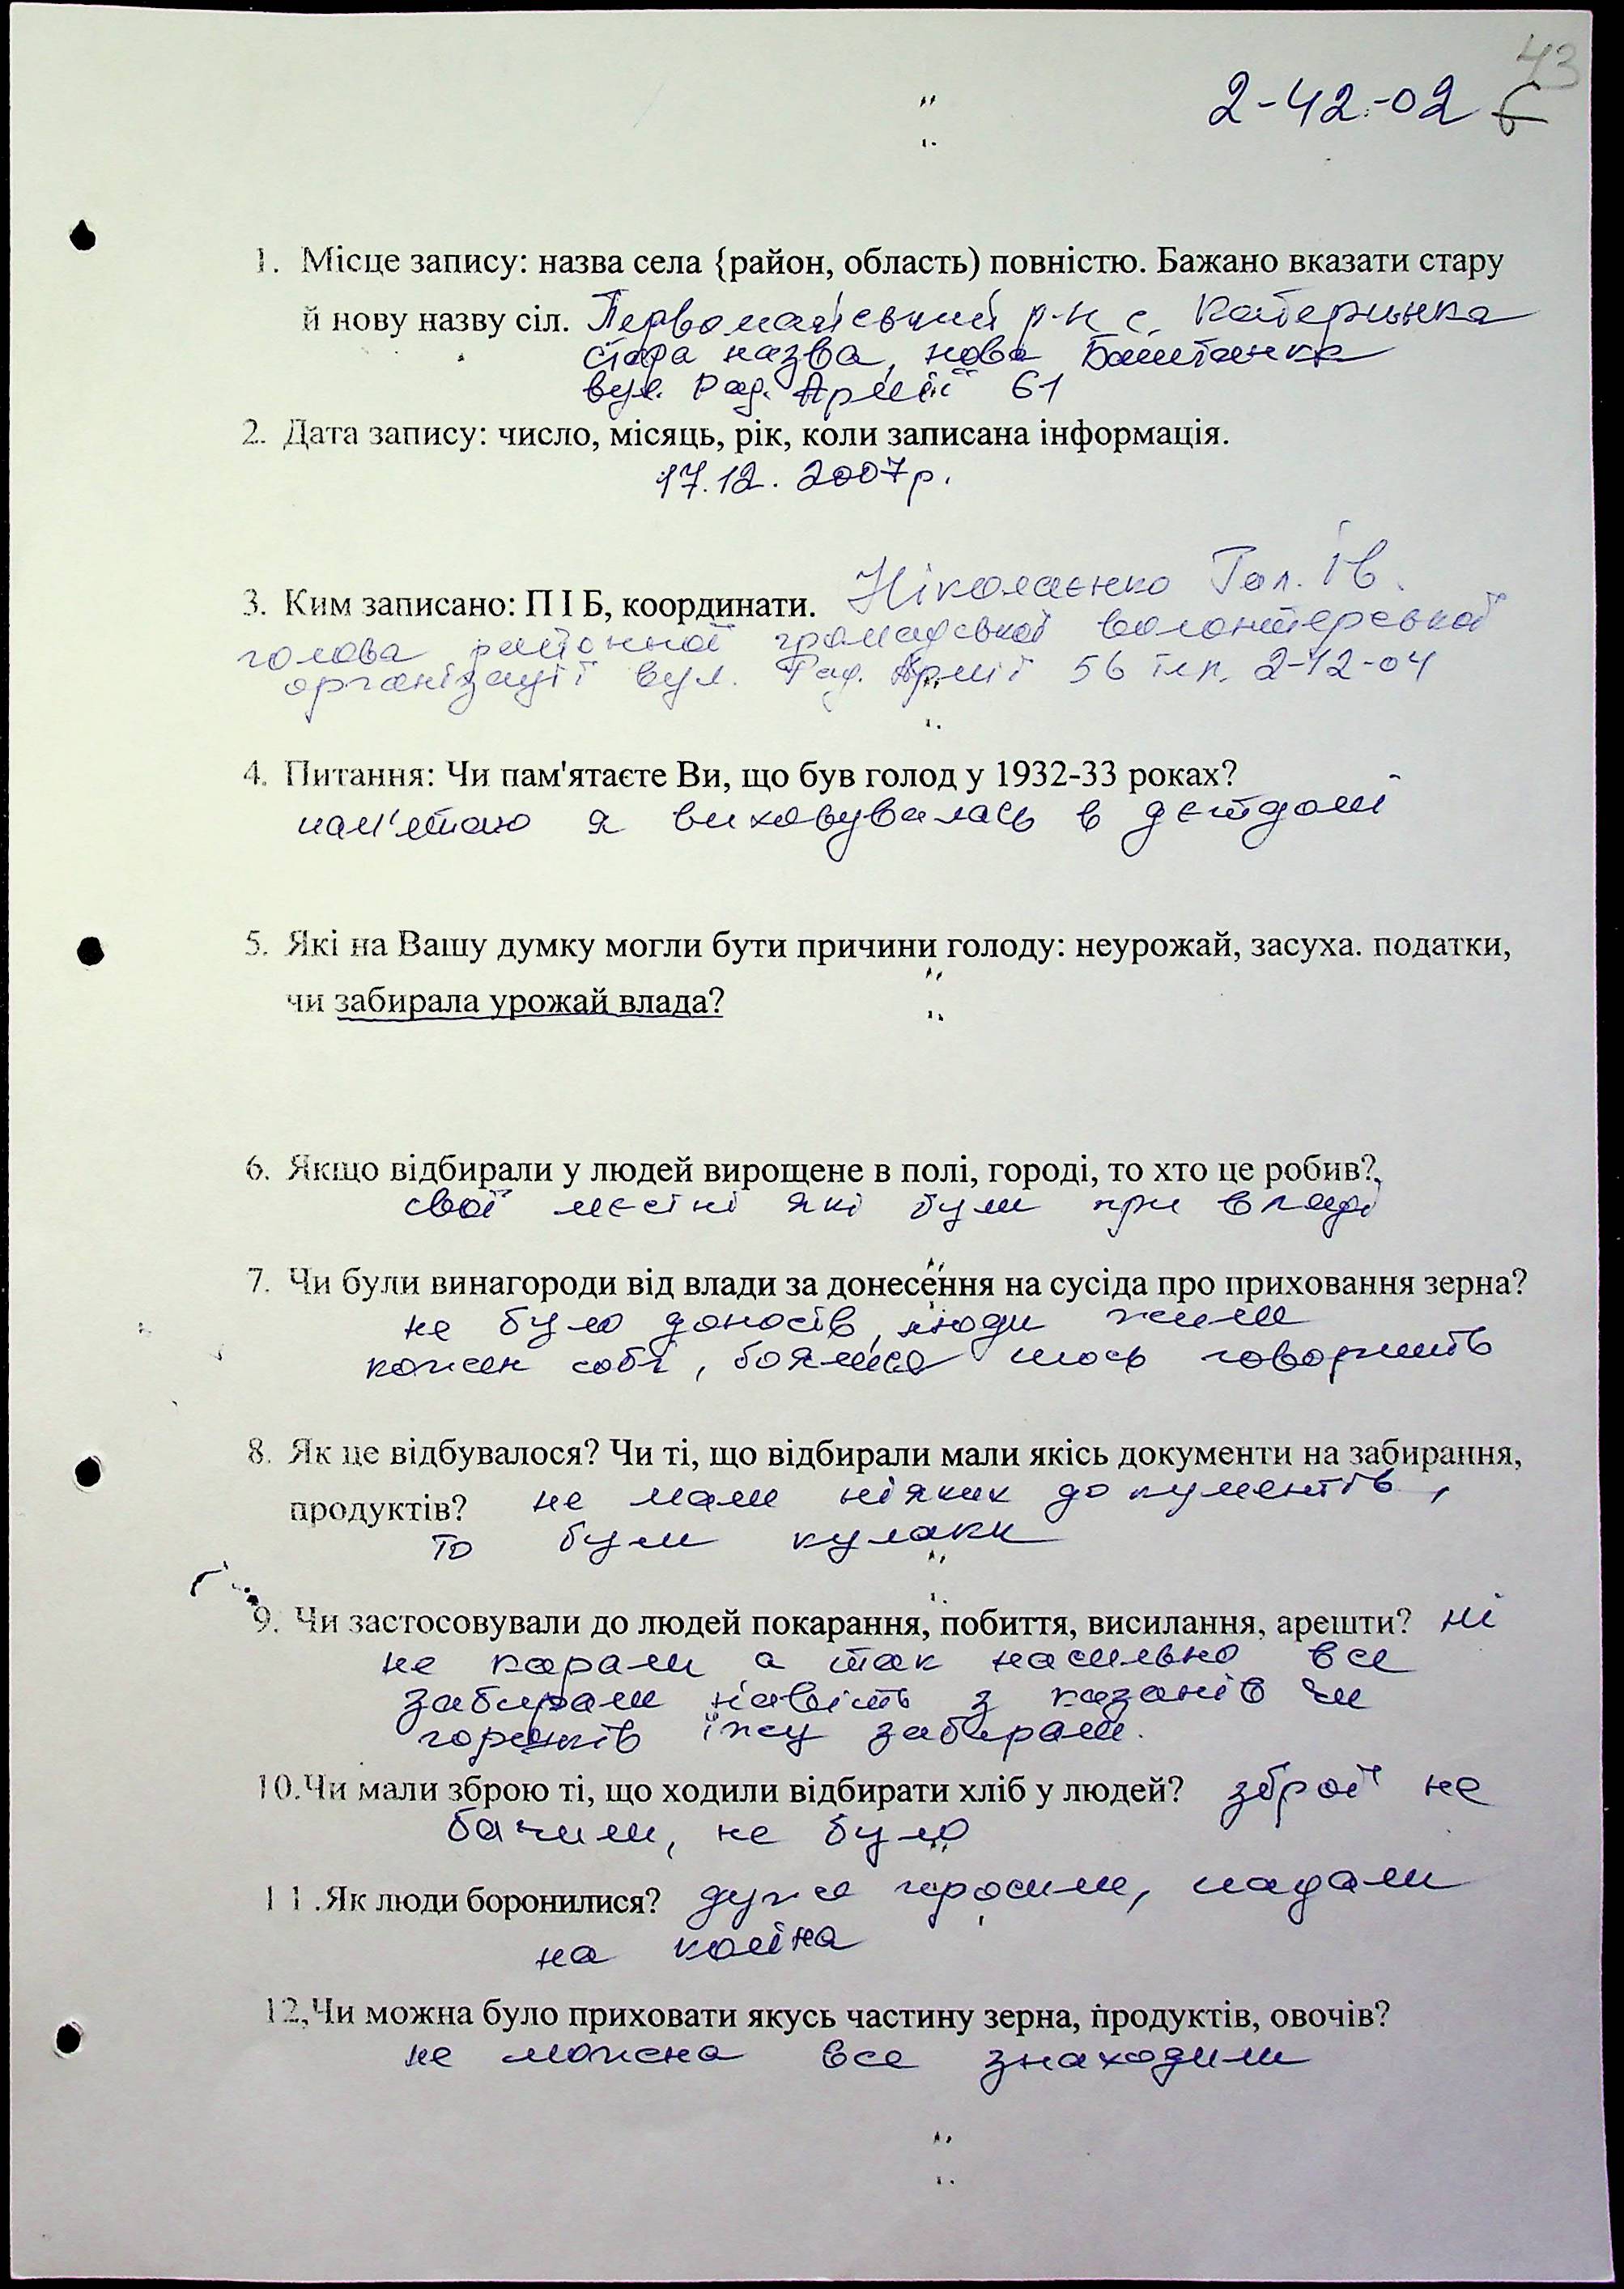 43
2-42-02
1. Місце запису: назва села {район, область) повністю. Бажано вказати стару
й нову назву сіл. Первомаієвкий р-н с. Катеринка
стара назва, нова Баштанка
вул. Рад. Армії 61
2. Дата запису: число, місяць, рік, коли записана інформація.
17.12. 2007р.
3. Ким записано: П І Б, координати. Ніколаєнко Гал. Ів.
голова районної громадської волонтерської
організації вул. Рад. Армії 56 тлп. 2-12-04
4. Питання: Чи пам'ятаєте Ви, що був голод у 1932-33 роках?
пам'ятаю я виховувалась в дєтдомі
5. Які на Вашу думку могли бути причини голоду: неурожай, засуха. податки,
чи забирала урожай влада?
6. Якщо відбирали у людей вирощене в полі, городі, то хто це робив?
свої мєстні які були при владі
7. Чи були винагороди від влади за донесення на сусіда про приховання зерна?
не було доносів, люди жили
кожен собі, боялися шось говорить
8. Як це відбувалося? Чи ті, що відбирали мали якісь документи на забирання,
продуктів? не мали ніяких документів,
то були кулаки
9. Чи застосовували до людей покарання, побиття, висилання, арешти? ні
не карали а так насильно все
забирали навіть з казанів чи
горшків їжу забирали.
10.Чи мали зброю ті, що ходили відбирати хліб у людей? зброї не
бачили, не було
11.Як люди боронилися? дуже просили, падали
на коліна
12,Чи можна було приховати якусь частину зерна, продуктів, овочів?
не можна все знаходили